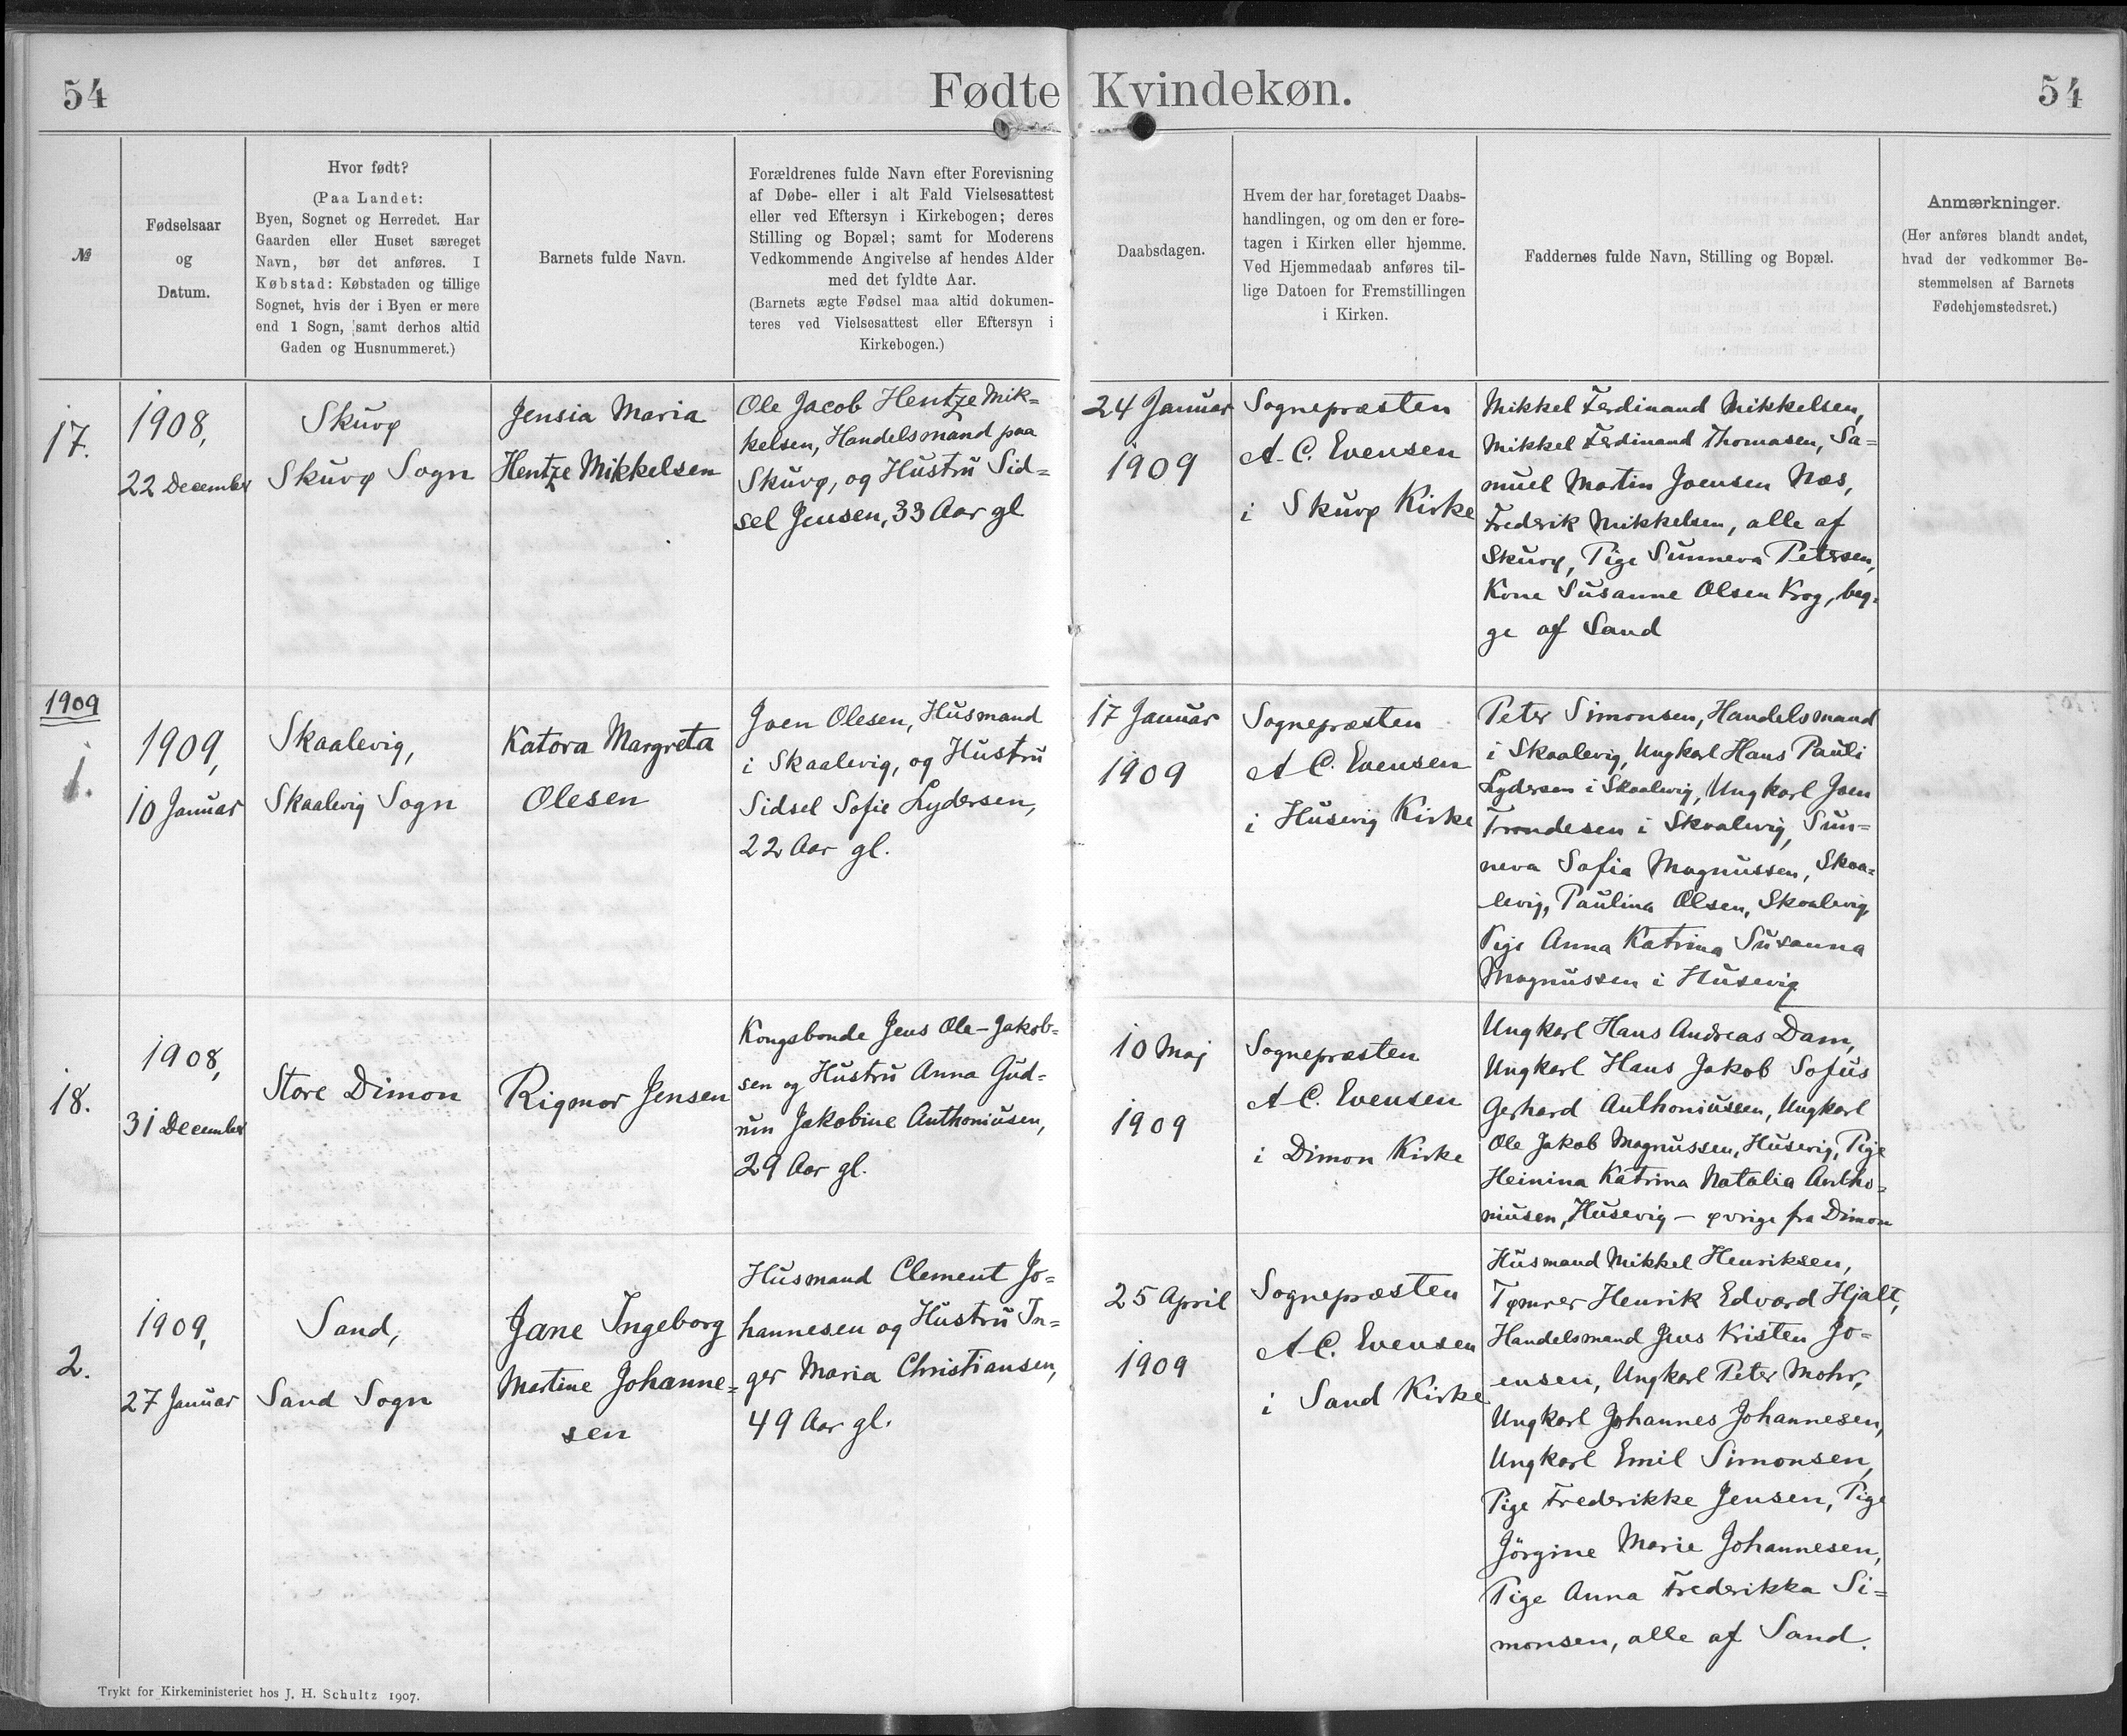 54
Fødte Kvindekøn.
54
№
Fødselsaar
og
Datum.
Hvor født?
(Paa Landet:
Byen, Sognet og Herredet. Har
Gaarden eller Huset særeget
Navn, bør det anføres. I
Købstad: Købstaden og tillige
Sognet, hvis der i Byen er mere
end 1 Sogn, samt derhos altid
Gaden og Husnummeret.)
Barnets fulde Navn.
Forældrenes fulde Navn efter Forevisning
af Døbe- eller i alt Fald Vielsesattest
eller ved Eftersyn i Kirkebogen; deres
Stilling og Bopæl; samt for Moderens
Vedkommende Angivelse af hendes Alder
med det fyldte Aar.
(Barnets ægte Fødsel maa altid dokumen-
teres ved Vielsesattest eller Eftersyn i
Kirkebogen.)
Daabsdagen.
Hvem der har foretaget Daabs-
handlingen, og om den er fore-
tagen i Kirken eller hjemme.
Ved Hjemmedaab anføres til-
lige Datoen for Fremstillingen
i Kirken.
Faddernes fulde Navn, Stilling og Bopæl.
Anmærkninger.
(Her anføres blandt andet,
hvad der vedkommer Be-
stemmelsen af Barnets
Fødehjemstedsret.)
17.
1908,
22 December
Skuvø
Skuvø Sogn
Jensia Maria
Hentze Mikkelsen
Ole Jacob Hentze Mik=
kelsen, Handelsmand paa
Skuvø, og Hustru Sid=
sel Jensen, 33 Aar gl
24 Januar
1909
Sognepræsten
A. C. Evensen
i Skuvø Kirke
Mikkel Ferdinand Mikkelsen,
Mikkel Ferdinand Thomasen, Sa=
muel Martin Joensen Næs,
Frederik Mikkelsen, alle af
Skuvø, Pige Sunneva Petersen,
Kone Susanne Olsen Krog, beg=
ge af Sand
1909
1.
1909,
10 Januar
Skaalevig,
Skaalevig Sogn
Katora Margreta
Olesen
Joen Olesen, Husmand
i Skaalevig, og Hustru
Sidsel Sofie Lydersen,
22 Aar gl.
17 Januar
1909
Sognepræsten
A C. Evensen
i Husevig Kirke
Peter Simonsen, Handelsmand
i Skaalevig, Ungkarl Hans Pauli
Lydersen i Skaalevig, Ungkarl Joen
Trondesen i Skaalevig, Sun=
neva Sofia Magnussen, Skaa=
levig, Paulina Olsen, Skaalevig,
Pige Anna Katrina Susanna
Magnussen i Husevig
18.
1908,
31 December
Store Dimon
Rigmor Jensen
Kongsbonde Jens Ole-Jakob=
sen og Hustru Anna Gud=
run Jakobine Anthoniusen,
29 Aar gl.
10 Maj
1909
Sognepræsten
A C. Evensen
i Dimon Kirke
Ungkarl Hans Andreas Dam,
Ungkarl Hans Jakob Sofus
Gerhard Anthoniussen, Ungkarl
Ole Jakob Magnussen, Husevig, Pige
Heinina Katrina Natalia Antho=
niusen, Husevig - øvrige fra Dimon
2.
1909,
27 Januar
Sand,
Sand Sogn
Jane Ingeborg
Martine Johanne=
sen
Husmand Clement Jo=
hannesen og Hustru In=
ger Maria Christiansen,
49 Aar gl.
25 April
1909
Sognepræsten
A C. Evensen
i Sand Kirke
Husmand Mikkel Henriksen,
Tømrer Henrik Edvard Hjalt,
Handelsmand Jens Kristen Jo=
ensen, Ungkarl Peter Mohr,
Ungkarl Johannes Johannesen,
Ungkarl Emil Simonsen,
Pige Frederikke Jensen, Pige
Jörgine Marie Johannesen,
Pige Anna Frederikka Si=
monsen, alle af Sand.
Trykt for Kirkeministeriet hos J. H. Schultz 1907.